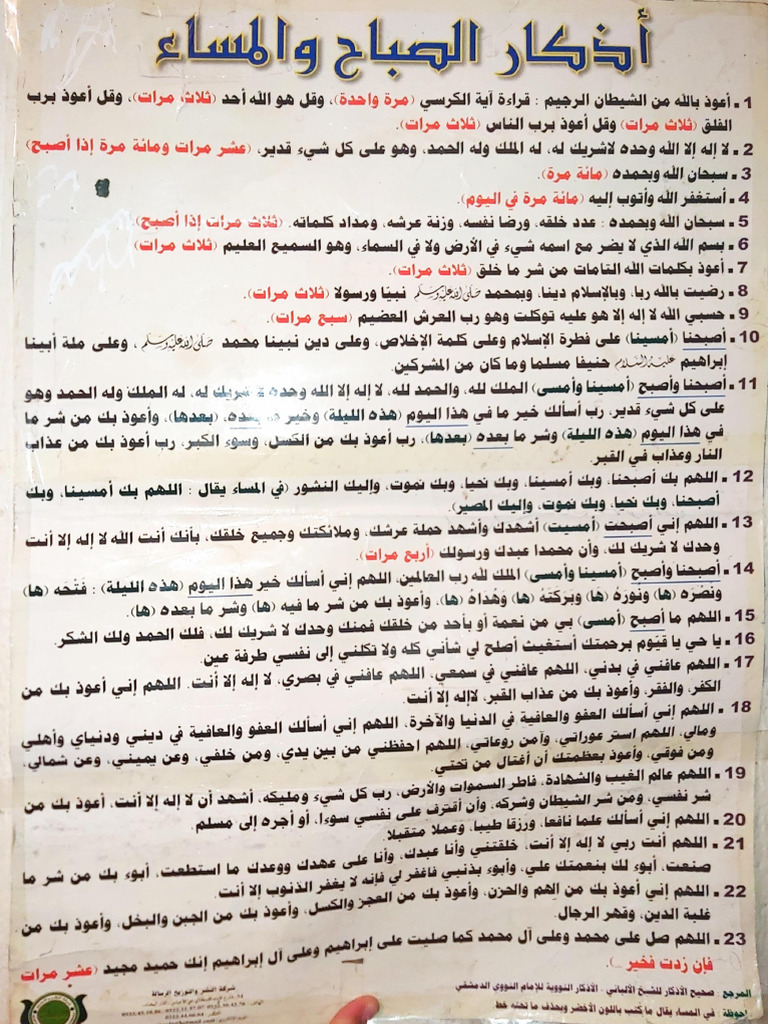 أذكار الصباح والمساء
1 ـ أعوذ بالله من الشيطان الرجيم : قراءة آية الكرسي (مرة واحدة)، وقل هو الله أحد (ثلاث مرات)، وقل أعوذ برب
الفلق (ثلاث مرات) وقل أعوذ برب الناس (ثلاث مرات).
2 ـ لا إله إلا الله وحده لاشريك له، له الملك وله الحمد، وهو على كل شيء قدير، (عشر مرات ومائة مرة إذا أصبح)
3 ـ سبحان الله وبحمده (مائة مرة).
4 ـ أستغفر الله وأتوب إليه (مائة مرة في اليوم).
5 ـ سبحان الله وبحمده : عدد خلقه، ورضا نفسه، وزنة عرشه، ومداد كلماته. (ثلاث مرات إذا أصبح).
6 ـ بسم الله الذي لا يضر مع اسمه شيء في الأرض ولا في السماء، وهو السميع العليم (ثلاث مرات)
7 ـ أعوذ بكلمات الله التامات من شر ما خلق (ثلاث مرات).
8 ـ رضيت بالله ربا، وبالإسلام دينا، وبمحمد ﷺ نبيا ورسولا (ثلاث مرات).
9 ـ حسبي الله لا إله إلا هو عليه توكلت وهو رب العرش العضيم (سبع مرات).
10 ـ أصبحنا (أمسينا) على فطرة الإسلام وعلى كلمة الإخلاص، وعلى دين نبينا محمد ﷺ، وعلى ملة أبينا
إبراهيم عليه السلام حنيفا مسلما وما كان من المشركين.
11 ـ أصبحنا وأصبح (أمسينا وأمسى) الملك لله، والحمد لله، لا إله إلا الله وحده لا شريك له، له الملك وله الحمد وهو
على كل شيء قدير، رب أسألك خير ما في هذا اليوم (هذه الليلة) وخير ما بعده، (بعدها)، وأعوذ بك من شر ما
في هذا اليوم (هذه الليلة) وشر ما بعده (بعدها)، رب أعوذ بك من الكسل، وسوء الكبر، رب أعوذ بك من عذاب
النار وعذاب في القبر.
12 ـ اللهم بك أصبحنا، وبك أمسينا، وبك نحيا، وبك نموت، وإليك النشور (في المساء يقال : اللهم بك أمسينا، وبك
أصبحنا، وبك نحيا، وبك نموت، وإليك المصير).
13 ـ اللهم إني أصبحت (أمسيت) أشهدك وأشهد حملة عرشك، وملائكتك وجميع خلقك، بأنك أنت الله لا إله إلا أنت
وحدك لا شريك لك، وأن محمدا عبدك ورسولك (أربع مرات).
14 ـ أصبحنا وأصبح (أمسينا وأمسى) الملك لله رب العالمين، اللهم إني أسألك خير هذا اليوم (هذه الليلة) : فَتْحَه (ها)
ونَصْرَه (ها) ونورَهُ (ها) وبَرَكتهُ (ها) وَهُداهُ (ها)، وأعوذ بك من شر ما فيه (ها) وشر ما بعده (ها).
15 ـ اللهم ما أصبح (أمسى) بي من نعمة أو بأحد من خلقك فمنك وحدك لا شريك لك، فلك الحمد ولك الشكر.
16 ـ يا حي يا قيّوم برحمتك أستغيث أصلح لي شأني كله ولا تكلني إلى نفسي طرفة عين.
17 ـ اللهم عافني في بدني، اللهم عافني في سمعي، اللهم عافني في بصري، لا إله إلا أنت. اللهم إني أعوذ بك من
الكفر، والفقر، وأعوذ بك من عذاب القبر، لاإله إلا أنت.
18 ـ اللهم إني أسألك العفو والعافية في الدنيا والآخرة، اللهم إني أسألك العفو والعافية في ديني ودنياي وأهلي
ومالي، اللهم استر عوراتي، وآمن روعاتي، اللهم احفظني من بين يدي، ومن خلفي، وعن يميني، وعن شمالي،
ومن فوقي، وأعوذ بعظمتك أن أغتال من تحتي.
19 ـ اللهم عالم الغيب والشهادة، فاطر السموات والأرض، رب كل شيء ومليكه، أشهد أن لا إله إلا أنت، أعوذ بك من
شر نفسي، ومن شر الشيطان وشركه، وأن أقترف على نفسي سوءا، أو أجره إلى مسلم.
20 ـ اللهم إني أسألك علما نافعا، ورزقا طيبا، وعملا متقبلا
21 ـ اللهم أنت ربي لا إله إلا أنت، خلقتني وأنا عبدك، وأنا على عهدك ووعدك ما استطعت، أعوذ بك من شر ما
صنعت، أبوء لك بنعمتك علي، وأبوء بذنبي فاغفر لي فإنه لا يغفر الذنوب إلا أنت.
22 ـ اللهم إني أعوذ بك من الهم والحزن، وأعوذ بك من العجز والكسل، وأعوذ بك من الجبن والبخل، وأعوذ بك من
غلبة الدين، وقهر الرجال.
23 ـ اللهم صل على محمد وعلى آل محمد كما صليت على إبراهيم وعلى آل إبراهيم إنك حميد مجيد (عشر مرات
فإن زدت فخير ..).
المرجع : صحيح الأذكار للشيخ الألباني - الأذكار النووية للإمام النووي الدمشقي
في المساء يقال ما كتب باللون الأخضر ويحذف ما تحته خط
شركة النشر والتوزيع الرسالة